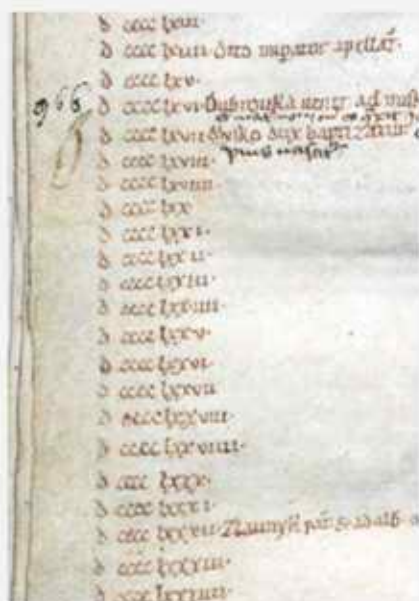 d cccc lxiii·
d cccc lxiiii· Otto inpator apellat·
d cccc lxv·
966 d cccc lxvi· Dubrouka uenit ad
d cccc lxvii· dux baptizatur
d cccc lxviii·
d cccc lxviiii·
d cccc lxx·
d cccc lxxi·
d cccc lxxii·
d cccc lxxiii·
d cccc lxxiiii·
d cccc lxxv·
d cccc lxxvi·
d cccc lxxvii
d cccc lxxviii·
d cccc lxxviiii·
d cccc lxxx·
d cccc lxxxi·
d cccc lxxxii· Zlaunyk
d cccc lxxxiii·
d cccc lxxxiiii·